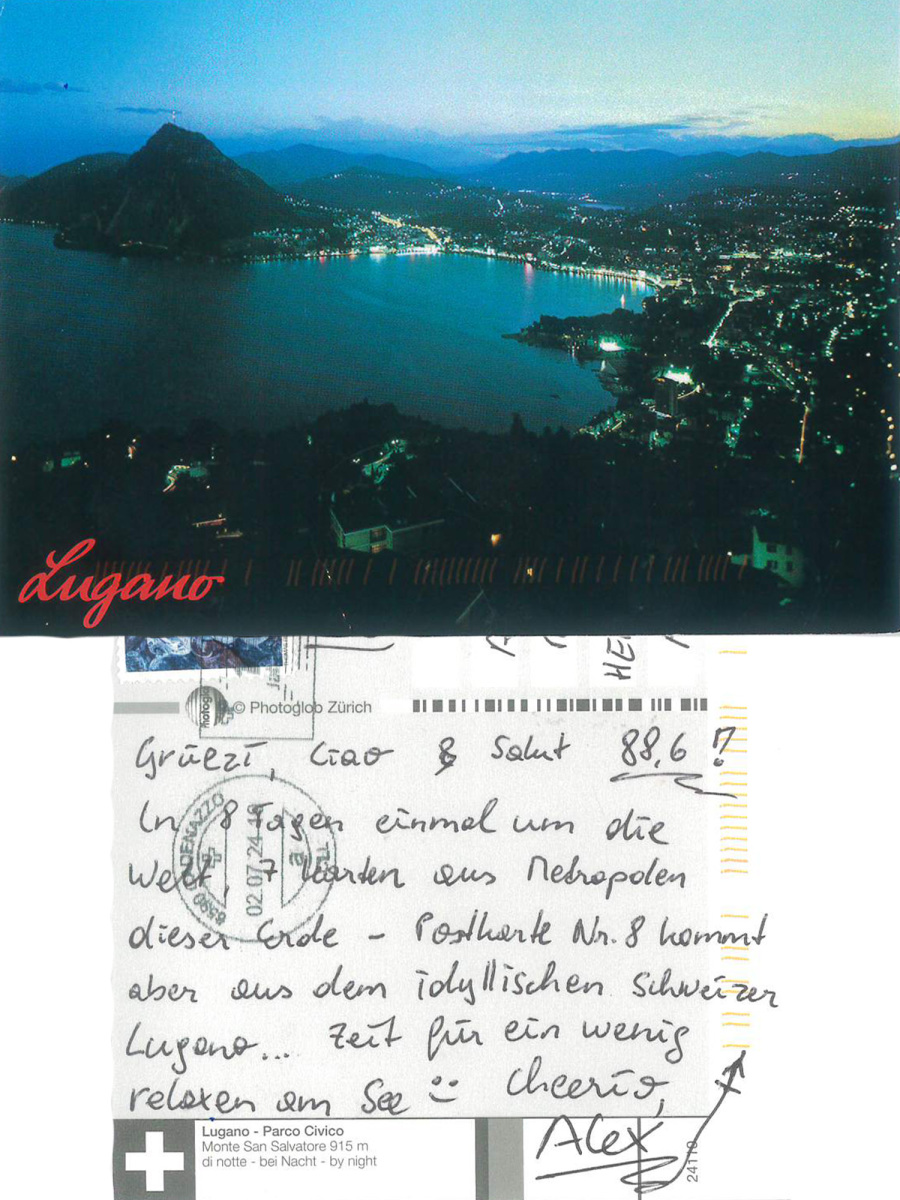 Lugano
HE
© Photoglob Zürich
Grüezi, Ciao & Salut 88,6!?
In 8 Tagen einmal um die
Welt, 7 Karten aus Metropolen
dieser Erde - Postkarte Nr. 8 kommt
aber aus dem idyllischen Schweizer
Lugano... Zeit für ein wenig
relaxen am See
Cheerio,
Alex
02.07.24-18
a
Lugano - Parco Civico
Monte San Salvatore 915 m
di notte - bei Nacht - by night
24110